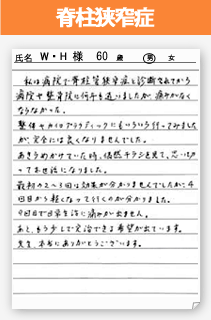 脊柱狭窄症
氏名 W・H 様 60 歳 男 女
私は病院で脊柱管狭窄症と診断されてから
病院や整骨院に何軒も通いましたが、痛みがなく
ならなかった。
整体やカイロプラティックにもいろいろ行ってみました
が、完全には良くなりませんでした。
あきらめかけていた時、偶然チラシを見て、思い切
ってお世話になりました。
最初の2〜3回は効果が分かりませんでしたが、4
回目から軽くなって行くのが分かりました。
9回目で日常生活に痛みが出ません。
あと、もう少しで完治できる希望が出ています。
先生、本当にありがとうございます。